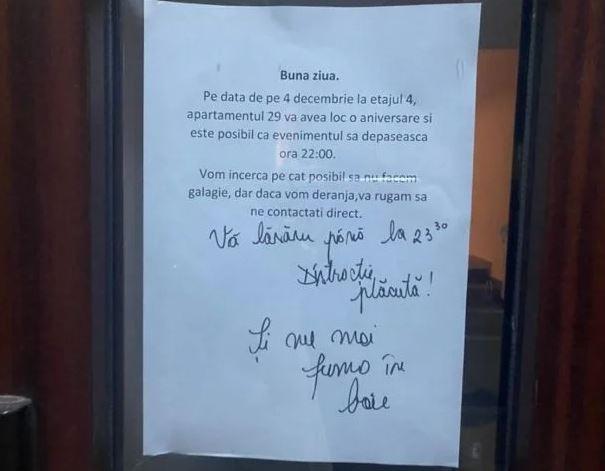 Buna ziua.
Pe data de pe 4 decembrie la etajul 4,
apartamentul 29 va avea loc o aniversare si
este posibil ca evenimentul sa depaseasca
ora 22:00.
Vom incerca pe cat posibil sa nu facem
galagie, dar daca vom deranja,va rugam sa
ne contactati direct.
Vă lăsăm până la 23³⁰
Distracție
plăcută!
Și nu mai
fuma în
baie